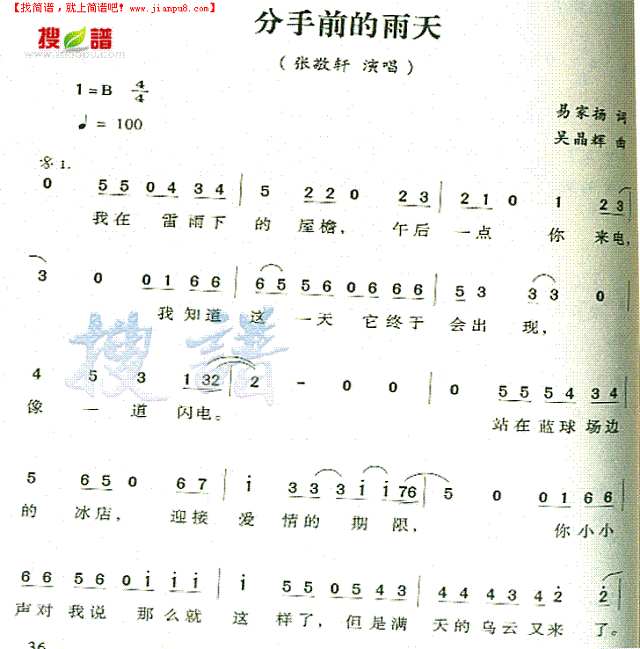 【找简谱，就上简谱吧！www.jianpu8.com】
搜谱
分手前的雨天
（张敬轩 演唱）
1=B 4/4
♩= 100
易家扬 词
吴晶辉 曲
1.
0 55 04 34 | 5 22 0 23 | 21 0 1 23
我在 雷雨下 的 屋檐， 午后 一点 你 来电，
3 0 01 66 | 65 56 06 66 | 53 33 0
我知道 这 一天 它终于 会出 现，
搜谱
4 5 3 132 | 2 - 0 0 | 0 55 54 34
像 一 道 闪电。 站在蓝球场边
5 65 0 67 | i 33 3i i76 | 5 0 01 66
的 冰店， 迎接 爱 情的 期 限， 你小小
66 56 0i ii | i 55 05 43 | 44 43 42 2
声对 我说 那么就 这 样了，但是满 天的乌云又来 了。
36